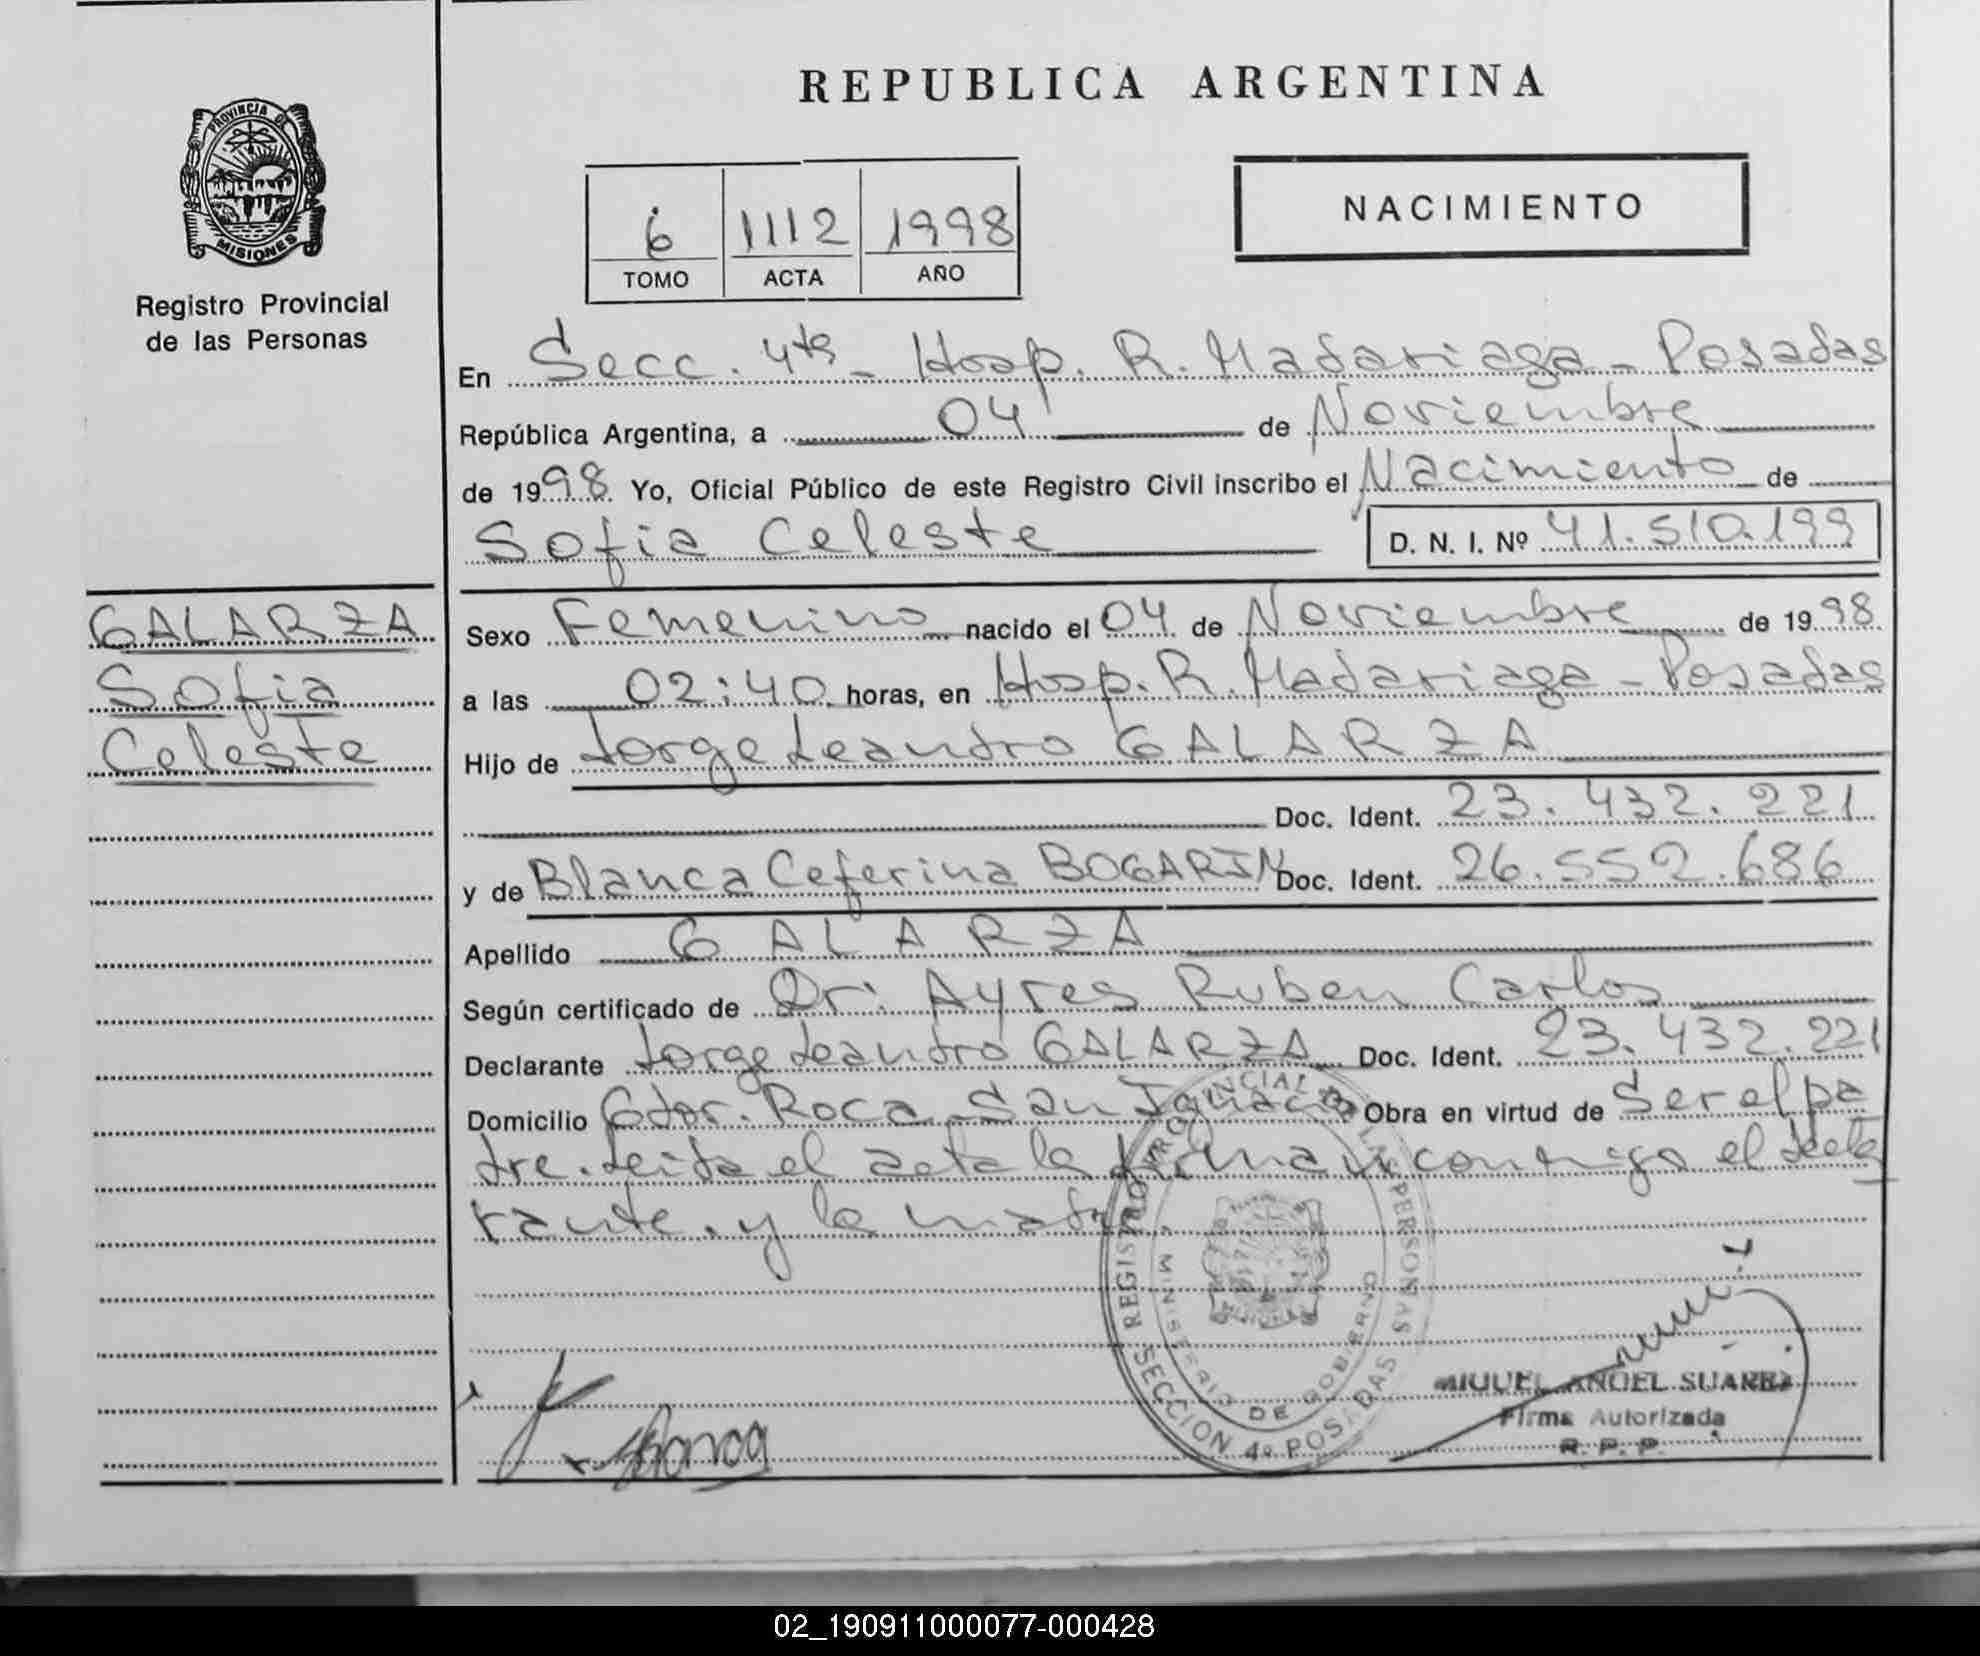 REPUBLICA ARGENTINA
PROVINCIA DE
MISIONES
Registro Provincial
de las Personas
6 1112 1998
TOMO ACTA AÑO
NACIMIENTO
En Secc. 4ta - Hosp. R. Madariaga - Posadas
República Argentina, a 04 de Noviembre
de 1998 Yo, Oficial Público de este Registro Civil inscribo el Nacimiento de
Sofia Celeste D. N. I. Nº 41.510.199
GALARZA
Sofia
Celeste
Sexo Femenino nacido el 04 de Noviembre de 1998
a las 02:40 horas, en Hosp. R. Madariaga - Posadas
Hijo de Jorge Leandro GALARZA
Doc. Ident. 23.432.221
y de Blanca Ceferina BOGARIN Doc. Ident. 26.552.686
Apellido GALARZA
Según certificado de Dr. Ayres Ruben Carlos
Declarante Jorge Leandro GALARZA Doc. Ident. 23.432.221
Domicilio Gdor. Roca - San Ignacio Obra en virtud de Ser el pa
dre. Leida el acta la firman conmigo el decla
rante. y la madre.
REGISTRO PROVINCIAL DE LAS PERSONAS
MINISTERIO DE GOBIERNO
SECCION 4º POSADAS
MIGUEL ANGEL SUAREZ
Firma Autorizada
R. P. P.
02_190911000077-000428